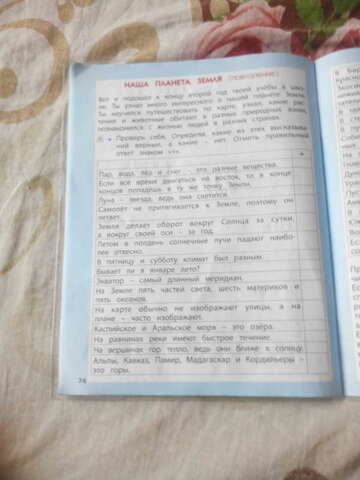 НАША ПЛАНЕТА ЗЕМЛЯ (ПОВТОРЕНИЕ)
Вот и подошёл к концу второй год твоей учёбы в шко-
ле. Ты узнал много интересного о нашей планете Земля.
Ты научился путешествовать по карте, узнал, какие рас-
тения и животные обитают в разных природных зонах,
познакомился с жизнью людей в разных странах.
Проверь себя. Определи, какие из этих высказыва-
ний верны, а какие – нет. Отметь правильный
ответ знаком «+».
Пар, вода, лёд и снег – это разные вещества.
Если всё время двигаться на восток, то в конце
концов попадёшь в ту же точку Земли.
Луна – звезда, ведь она светится.
Самолёт не притягивается к Земле, поэтому он
летает.
Земля делает оборот вокруг Солнца за сутки,
а вокруг своей оси – за год.
Летом в полдень солнечные лучи падают наибо-
лее отвесно.
В пятницу и субботу климат был разным.
Бывает ли в январе лето?
Экватор – самый длинный меридиан.
На Земле пять частей света, шесть материков и
пять океанов.
На карте обычно не изображают улицы, а на
плане – часто изображают.
Каспийское и Аральское моря – это озёра.
На равнинах реки имеют быстрое течение.
На вершинах гор тепло, ведь они ближе к солнцу.
Альпы, Кавказ, Памир, Мадагаскар и Кордильеры –
это горы.